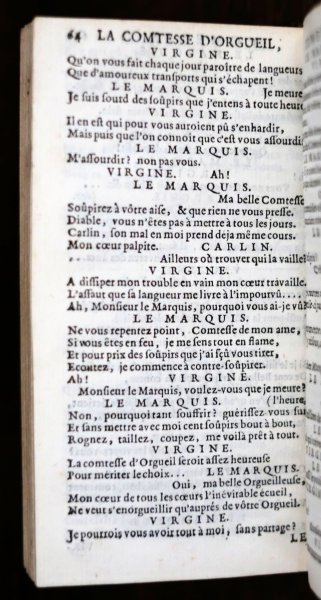 64 LA COMTESSE D'ORGUEIL,
VIRGINE.
Qu'on vous fait chaque jour paroître de langueurs
Que d'amoureux transports qui s'échapent!
LE MARQUIS. Je meure
Je suis sourd des soûpirs que j'entens à toute heure
VIRGINE.
Il en est qui pour vous auroient pû s'enhardir,
Mais puis que l'on connoit que c'est vous assourdir
LE MARQUIS.
M'assourdir? non pas vous.
VIRGINE. Ah!
LE MARQUIS.
Ma belle Comtesse
Soûpirez à vôtre aise, & que rien ne vous presse.
Diable, vous n'êtes pas à mettre à tous les jours.
Carlin, son mal en moi prend deja même cours.
Mon cœur palpite. CARLIN.
Ailleurs où trouver qui la vaille?
VIRGINE.
A dissiper mon trouble en vain mon cœur travaille.
L'assaut que sa langueur me livre à l'impourvû....
Ah, Monsieur le Marquis, pourquoi vous ai-je vû?
LE MARQUIS.
Ne vous repentez point, Comtesse de mon ame,
Si vous êtes en feu, je me sens tout en flame,
Et pour prix des soûpirs que j'ai sçû vous tirer,
Ecoutez, je commence à contre-soûpirer.
Ah! VIRGINE.
Monsieur le Marquis, voulez-vous que je meure?
LE MARQUIS. (l'heure,
Non, pourquoi tant souffrir? guérissez vous sur
Et sans mettre avec moi cent soûpirs bout à bout,
Rognez, taillez, coupez, me voilà prêt à tout.
VIRGINE.
La comtesse d'Orgueil seroit assez heureuse
Pour mériter le choix... LE MARQUIS.
Oui, ma belle Orgueilleuse,
Mon cœur de tous les cœurs l'inévitable écueil,
Ne veut s'enorgueillir qu'auprés de vôtre Orgueil.
VIRGINE.
Je pourrois vous avoir tout à moi, sans partage?
LE